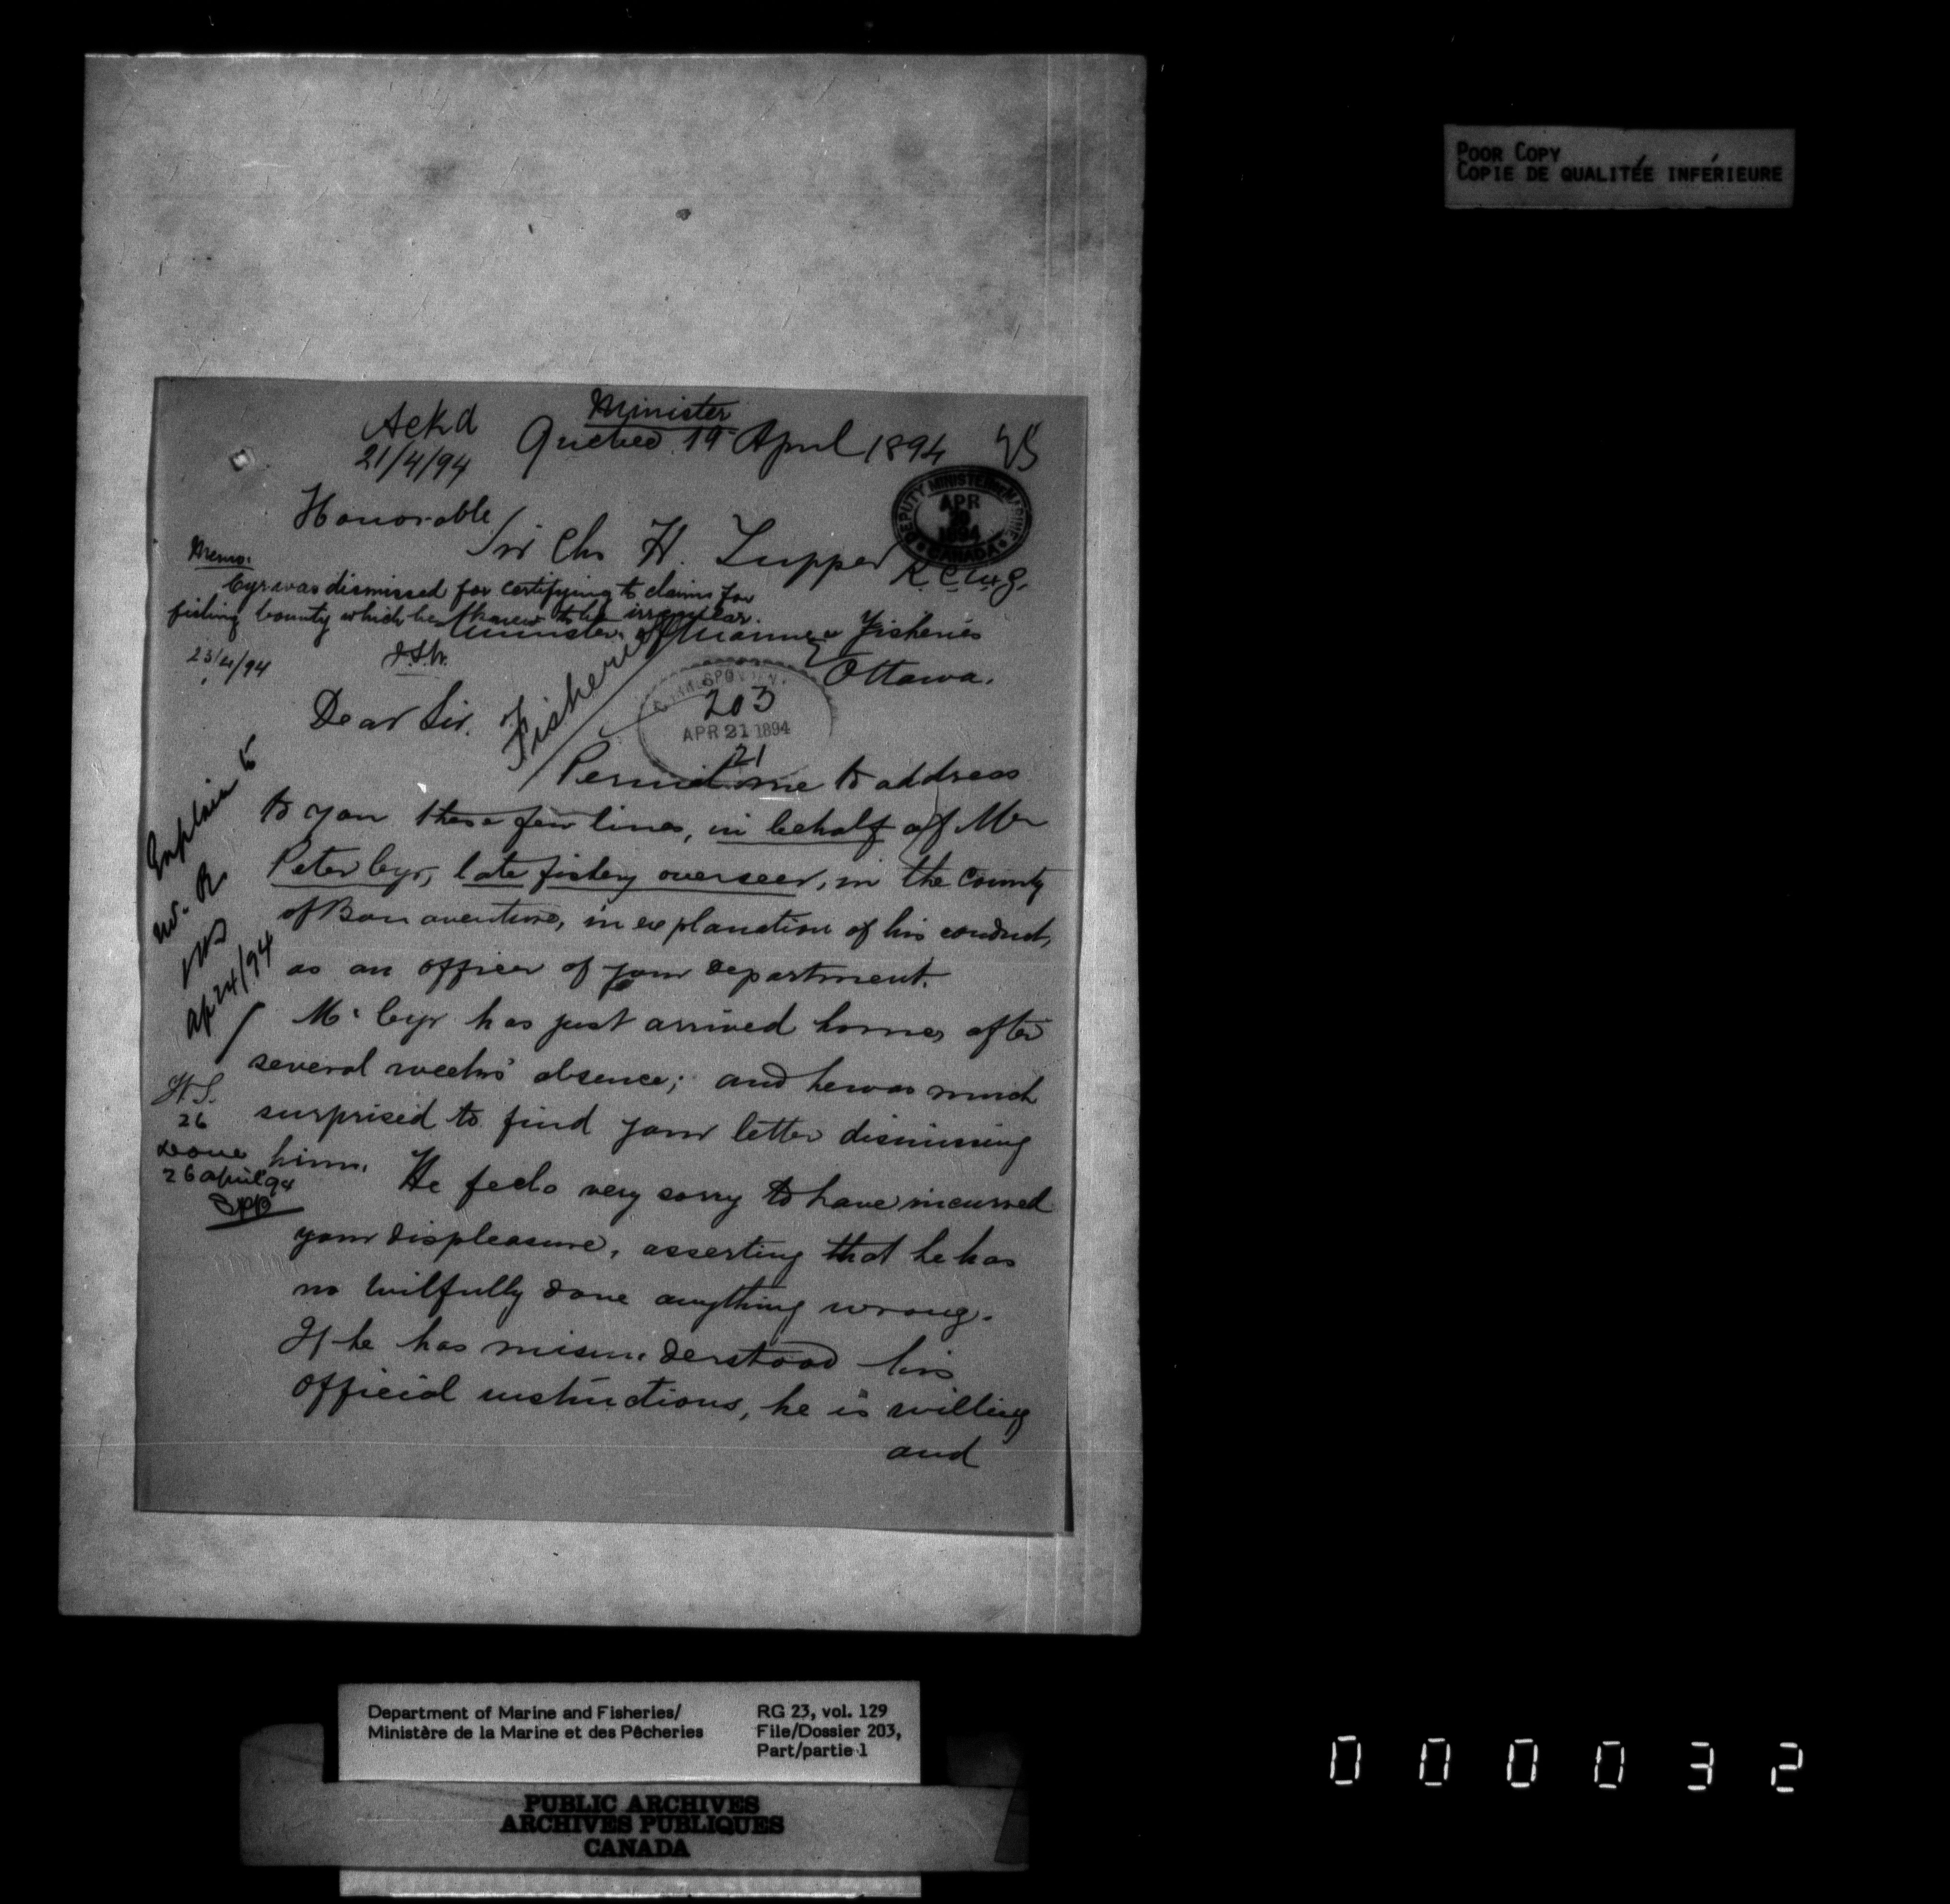 POOR COPY
COPIE DE QUALITÉE INFÉRIEURE
Minister
Ackd
21/4/94
Quebec 19 April 1894
DEPUTY MINISTER OF MARINE
APR
1894
CANADA
Honorable
Sir Chs H. Tupper
K.C.M.G.
Memo.
Cyr was dismissed for certifying to claims for
fishing bounty which he knew to be irregular.
Minister of Marine & Fisheries
23/4/94
Ottawa.
Fisheries
203
APR 21 1894
21
Dear Sir.
Permit me to address
to you these few lines, in behalf of Mr
Peter Cyr, late fishery overseer, in the County
of Bonaventure, in explanation of his conduct,
as an officer of your department.
Explain to
Ap 24/94
Mr Cyr has just arrived home, after
several weeks' absence; and he was much
surprised to find your letter dismissing
him. He feels very sorry to have incurred
your displeasure, asserting that he has
no wilfully done anything wrong.
If he has misunderstood his
official instructions, he is willing
and
H.S.
26
Done
26 April 94
Department of Marine and Fisheries/
Ministère de la Marine et des Pêcheries
RG 23, vol. 129
File/Dossier 203,
Part/partie 1
PUBLIC ARCHIVES
ARCHIVES PUBLIQUES
CANADA
000032